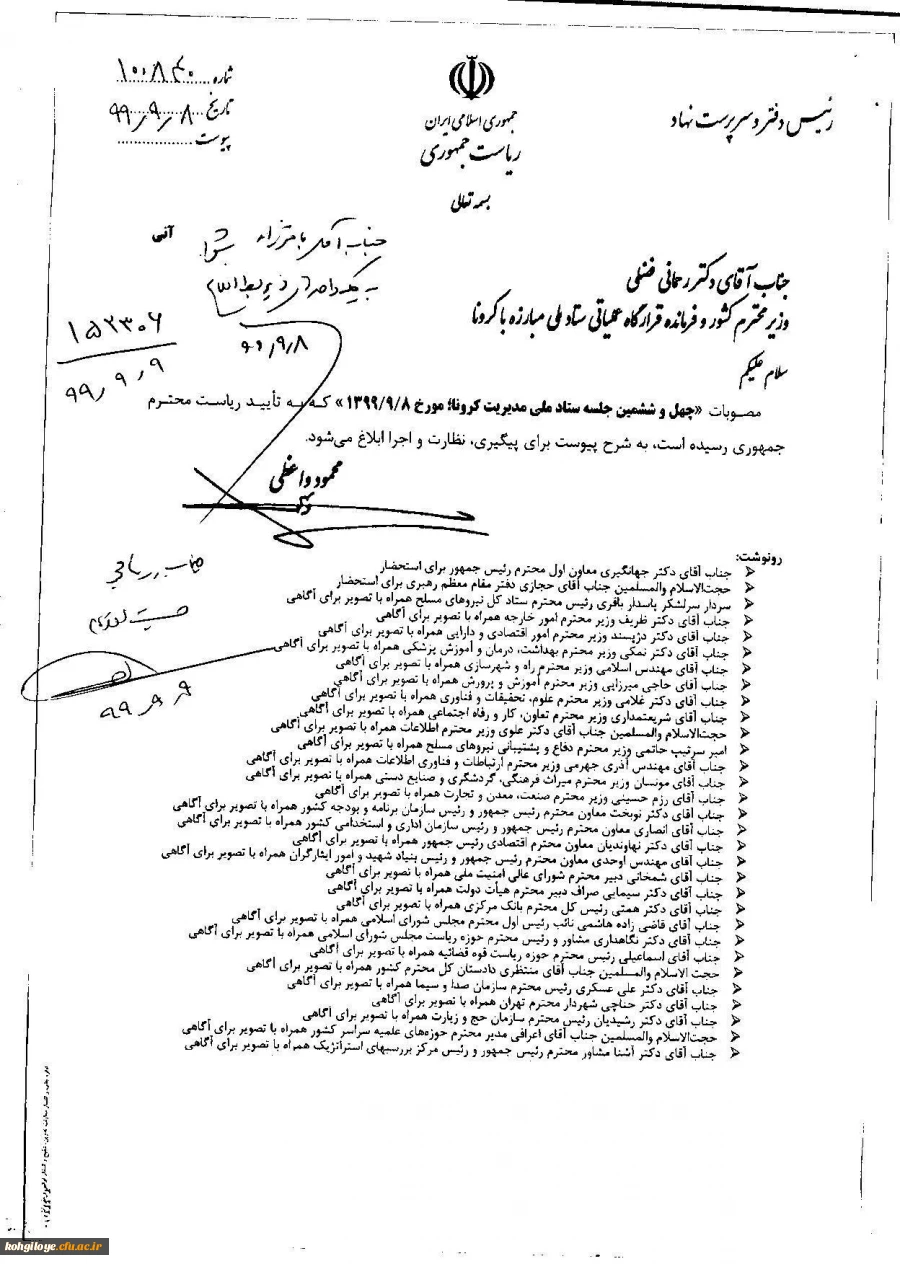 رئیس دفتر و سرپرست نهاد
جمهوری اسلامی ایران
ریاست جمهوری
شماره ۱۰۰۸۴۰
تاریخ ۹۹/۹/۸
پیوست
بسمه تعالی
آنی
جناب آقای
۹۹/۹/۸
۱۵۲۳۰۶
۹۹/۹/۹
جناب آقای دکتر رحمانی فضلی
وزیر محترم کشور و فرمانده قرارگاه عملیاتی ستاد ملی مبارزه با کرونا
سلام علیکم
مصوبات «چهل و ششمین جلسه ستاد ملی مدیریت کرونا؛ مورخ ۱۳۹۹/۹/۸» که به تأیید ریاست محترم
جمهوری رسیده است، به شرح پیوست برای پیگیری، نظارت و اجرا ابلاغ می‌شود.
محمود واعظی
رونوشت:
جناب آقای دکتر جهانگیری معاون اول محترم رئیس جمهور برای استحضار
حجت‌الاسلام والمسلمین جناب آقای حجازی دفتر مقام معظم رهبری برای استحضار
سردار سرلشکر پاسدار باقری رئیس محترم ستاد کل نیروهای مسلح همراه با تصویر برای آگاهی
جناب آقای دکتر ظریف وزیر محترم امور خارجه همراه با تصویر برای آگاهی
جناب آقای دکتر دژپسند وزیر محترم امور اقتصادی و دارایی همراه با تصویر برای آگاهی
جناب آقای دکتر نمکی وزیر محترم بهداشت، درمان و آموزش پزشکی همراه با تصویر برای آگاهی
جناب آقای مهندس اسلامی وزیر محترم راه و شهرسازی همراه با تصویر برای آگاهی
جناب آقای حاجی میرزایی وزیر محترم آموزش و پرورش همراه با تصویر برای آگاهی
جناب آقای دکتر غلامی وزیر محترم علوم، تحقیقات و فناوری همراه با تصویر برای آگاهی
جناب آقای شریعتمداری وزیر محترم تعاون، کار و رفاه اجتماعی همراه با تصویر برای آگاهی
حجت‌الاسلام والمسلمین جناب آقای دکتر علوی وزیر محترم اطلاعات همراه با تصویر برای آگاهی
امیر سرتیپ حاتمی وزیر محترم دفاع و پشتیبانی نیروهای مسلح همراه با تصویر برای آگاهی
جناب آقای مهندس آذری جهرمی وزیر محترم ارتباطات و فناوری اطلاعات همراه با تصویر برای آگاهی
جناب آقای مونسان وزیر محترم میراث فرهنگی، گردشگری و صنایع دستی همراه با تصویر برای آگاهی
جناب آقای رزم حسینی وزیر محترم صنعت، معدن و تجارت همراه با تصویر برای آگاهی
جناب آقای دکتر نوبخت معاون محترم رئیس جمهور و رئیس سازمان برنامه و بودجه کشور همراه با تصویر برای آگاهی
جناب آقای انصاری معاون محترم رئیس جمهور و رئیس سازمان اداری و استخدامی کشور همراه با تصویر برای آگاهی
جناب آقای دکتر نهاوندیان معاون محترم اقتصادی رئیس جمهور همراه با تصویر برای آگاهی
جناب آقای مهندس اوحدی معاون محترم رئیس جمهور و رئیس بنیاد شهید و امور ایثارگران همراه با تصویر برای آگاهی
جناب آقای شمخانی دبیر محترم شورای عالی امنیت ملی همراه با تصویر برای آگاهی
جناب آقای دکتر سیمایی صراف دبیر محترم هیأت دولت همراه با تصویر برای آگاهی
جناب آقای دکتر همتی رئیس کل محترم بانک مرکزی همراه با تصویر برای آگاهی
جناب آقای قاضی زاده هاشمی نائب رئیس اول محترم مجلس شورای اسلامی همراه با تصویر برای آگاهی
جناب آقای دکتر نگاهداری مشاور و رئیس محترم حوزه ریاست مجلس شورای اسلامی همراه با تصویر برای آگاهی
جناب آقای اسماعیلی رئیس محترم حوزه ریاست قوه قضائیه همراه با تصویر برای آگاهی
حجت الاسلام والمسلمین جناب آقای منتظری دادستان کل محترم کشور همراه با تصویر برای آگاهی
جناب آقای دکتر علی عسکری رئیس محترم سازمان صدا و سیما همراه با تصویر برای آگاهی
جناب آقای دکتر حناچی شهردار محترم تهران همراه با تصویر برای آگاهی
جناب آقای دکتر رشیدیان رئیس محترم سازمان حج و زیارت همراه با تصویر برای آگاهی
حجت‌الاسلام والمسلمین جناب آقای اعرافی مدیر محترم حوزه‌های علمیه سراسر کشور همراه با تصویر برای آگاهی
جناب آقای دکتر آشنا مشاور محترم رئیس جمهور و رئیس مرکز بررسیهای استراتژیک همراه با تصویر برای آگاهی
۹۹/۹/۹
kohgiloye.cfu.ac.ir